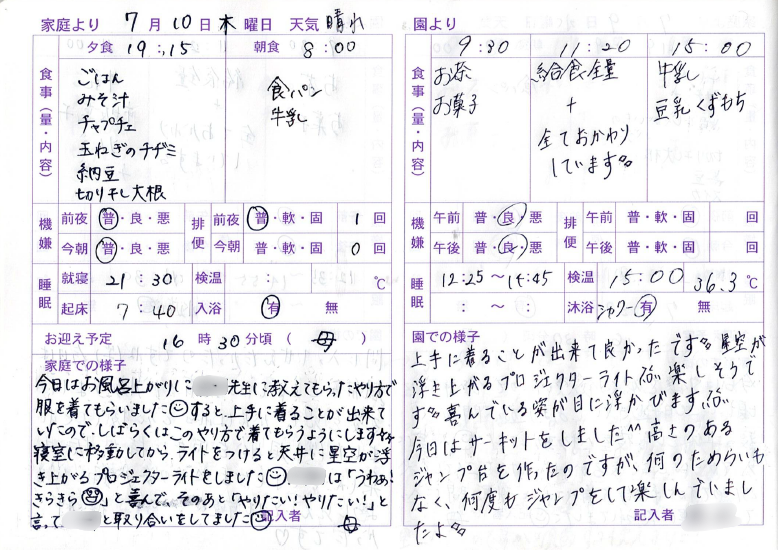 家庭より 7月10日 木曜日 天気 晴れ
夕食 19:15 朝食 8:00
食事（量・内容）
ごはん
みそ汁
チャプチェ
玉ねぎのチヂミ
納豆
切り干し大根
食パン
牛乳
機嫌 前夜 普・良・悪 排便 前夜 普・軟・固 1回
今朝 普・良・悪 今朝 普・軟・固 0回
睡眠 就寝 21:30 検温 : ℃
起床 7:40 入浴 有 無
お迎え予定 16時30分頃（ 母 ）
家庭での様子
今日はお風呂上がりに 先生に教えてもらったやり方で
服を着てもらいました すると、上手に着ることが出来て
いたので、しばらくはこのやり方で着てもらうようにします
寝室に移動してから、ライトをつけると天井に星空が浮
き上がるプロジェクターライトをしました は「うわぁ!
きらきら 」と喜んで、そのあと「やりたい!やりたい!」と
言って と取り合いをしてました
記入者 母
園より
9:30 11:20 15:00
食事（量・内容）
お茶
お菓子
給食全量
+
全ておかわり
しています
牛乳
豆乳くずもち
機嫌 午前 普・良・悪 排便 午前 普・軟・固 回
午後 普・良・悪 午後 普・軟・固 回
睡眠 12:25～14:45 検温 15:00 36.3℃
: ～ : 沐浴 シャワー 有 無
園での様子
上手に着ることが出来て良かったです 星空が
浮き上がるプロジェクターライト 楽しそうで
す 喜んでいる姿が目に浮かびます
今日はサーキットをしました^^ 高さのある
ジャンプ台を作ったのですが、何のためらいも
なく、何度もジャンプをして楽しんでいまし
たよ
記入者